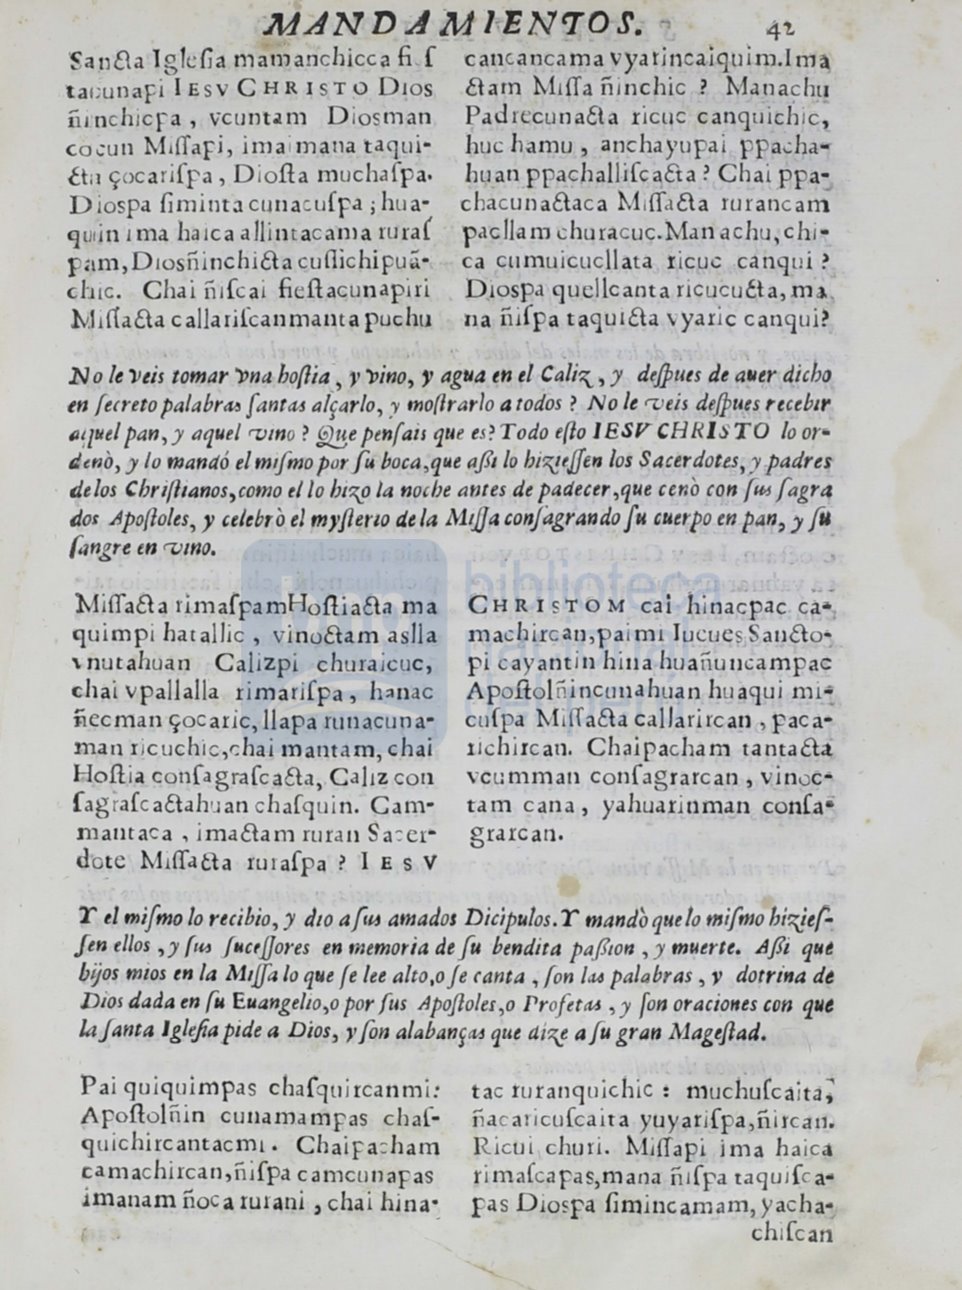 MANDAMIENTOS. 42
Sancta Iglesia mamanchicca fi ſ
tacunapi IESV CHRISTO Dios
ñinchicpa, vcuntam Diosman
cocun Miſſapi, imaimana taqui-
cta çocariſpa, Dioſta muchaſpa.
Diospa ſimintacunacuſpa; hua-
quin ima haica allintacama ruraſ
pam, Diosñinchicta cuſſichipuã-
chic. Chai ñiſcai fieſtacunapiri
Miſſacta callariſcanmanta puchu
cancancama vyarincaiquim. Ima
ctam Miſſa ñinchic? Manachu
Padrecunacta ricuc canquichic,
huc hamu, anchayupai ppacha-
huan ppachalliſcacta? Chai ppa-
chacunactaca Miſſacta rurancam
pacllam churacuc. Manachu, chi-
ca cumuicucllata ricuc canqui?
Diospa quellcanta ricucucta, ma
na ñiſpa taquicta vyaric canqui?
No le veis tomar vna hoſtia, y vino, y agua en el Caliz, y deſpues de auer dicho
en ſecreto palabras ſantas alçarlo, y moſtrarlo a todos? No le veis deſpues recebir
aquel pan, y aquel vino? Que penſais que es? Todo eſto IESV CHRISTO lo or-
denò, y lo mandó el miſmo por ſu boca, que aſsi lo hizieſſen los Sacerdotes, y padres
delos Chriſtianos, como el lo hizo la noche antes de padecer, que cenò con ſus ſagra
dos Apoſtoles, y celebrò el myſterio dela Miſſa conſagrando ſu cuerpo en pan, y ſu
ſangre en vino.
Miſſacta rimaſpamHoſtiacta ma
quimpi hatallic, vinoctam aslla
vnutahuan Calizpi churaicuc,
chai vpallalla rimariſpa, hanac
ñecman çocaric, llapa runacuna-
man ricuchic, chai mantam, chai
Hoſtia conſagraſcacta, Caliz con
ſagraſcactahuan chaſquin. Cam-
mantaca, imactam ruran Sacer-
dote Miſſacta ruraſpa? IESV
CHRISTOM cai hinacpac ca-
machircan, paimi Iueues Sancto-
pi cayantin hina huañuncampac
Apoſtolñincunahuan huaqui mi-
cuſpa Miſſacta callarircan, paca-
richircan. Chaipacham tantacta
vcumman conſagrarcan, vinoc-
tam cana, yahuarinman conſa-
grarcan.
Y el miſmo lo recibio, y dio a ſus amados Dicipulos. Y mandò que lo miſmo hizieſ-
ſen ellos, y ſus ſuceſſores en memoria de ſu bendita paſsion, y muerte. Aſsi que
hijos mios en la Miſſa lo que ſe lee alto, o ſe canta, ſon las palabras, y dotrina de
Dios dada en ſu Euangelio, o por ſus Apoſtoles, o Profetas, y ſon oraciones con que
la ſanta Igleſia pide a Dios, y ſon alabanças que dize a ſu gran Mageſtad.
Pai quiquimpas chaſquircanmi:
Apoſtolñin cunamampas chaſ-
quichircantacmi. Chaipacham
camachircan, ñiſpa camcunapas
imanam ñoca rurani, chai hina-
tac ruranquichic: muchuſcaita,
ñacaricuſcaita yuyariſpa, ñircan.
Ricui churi. Miſſapi ima haica
rimaſcapas, mana ñiſpa taquiſca-
pas Diospa ſimincamam, yacha-
chiſcan
biblioteca